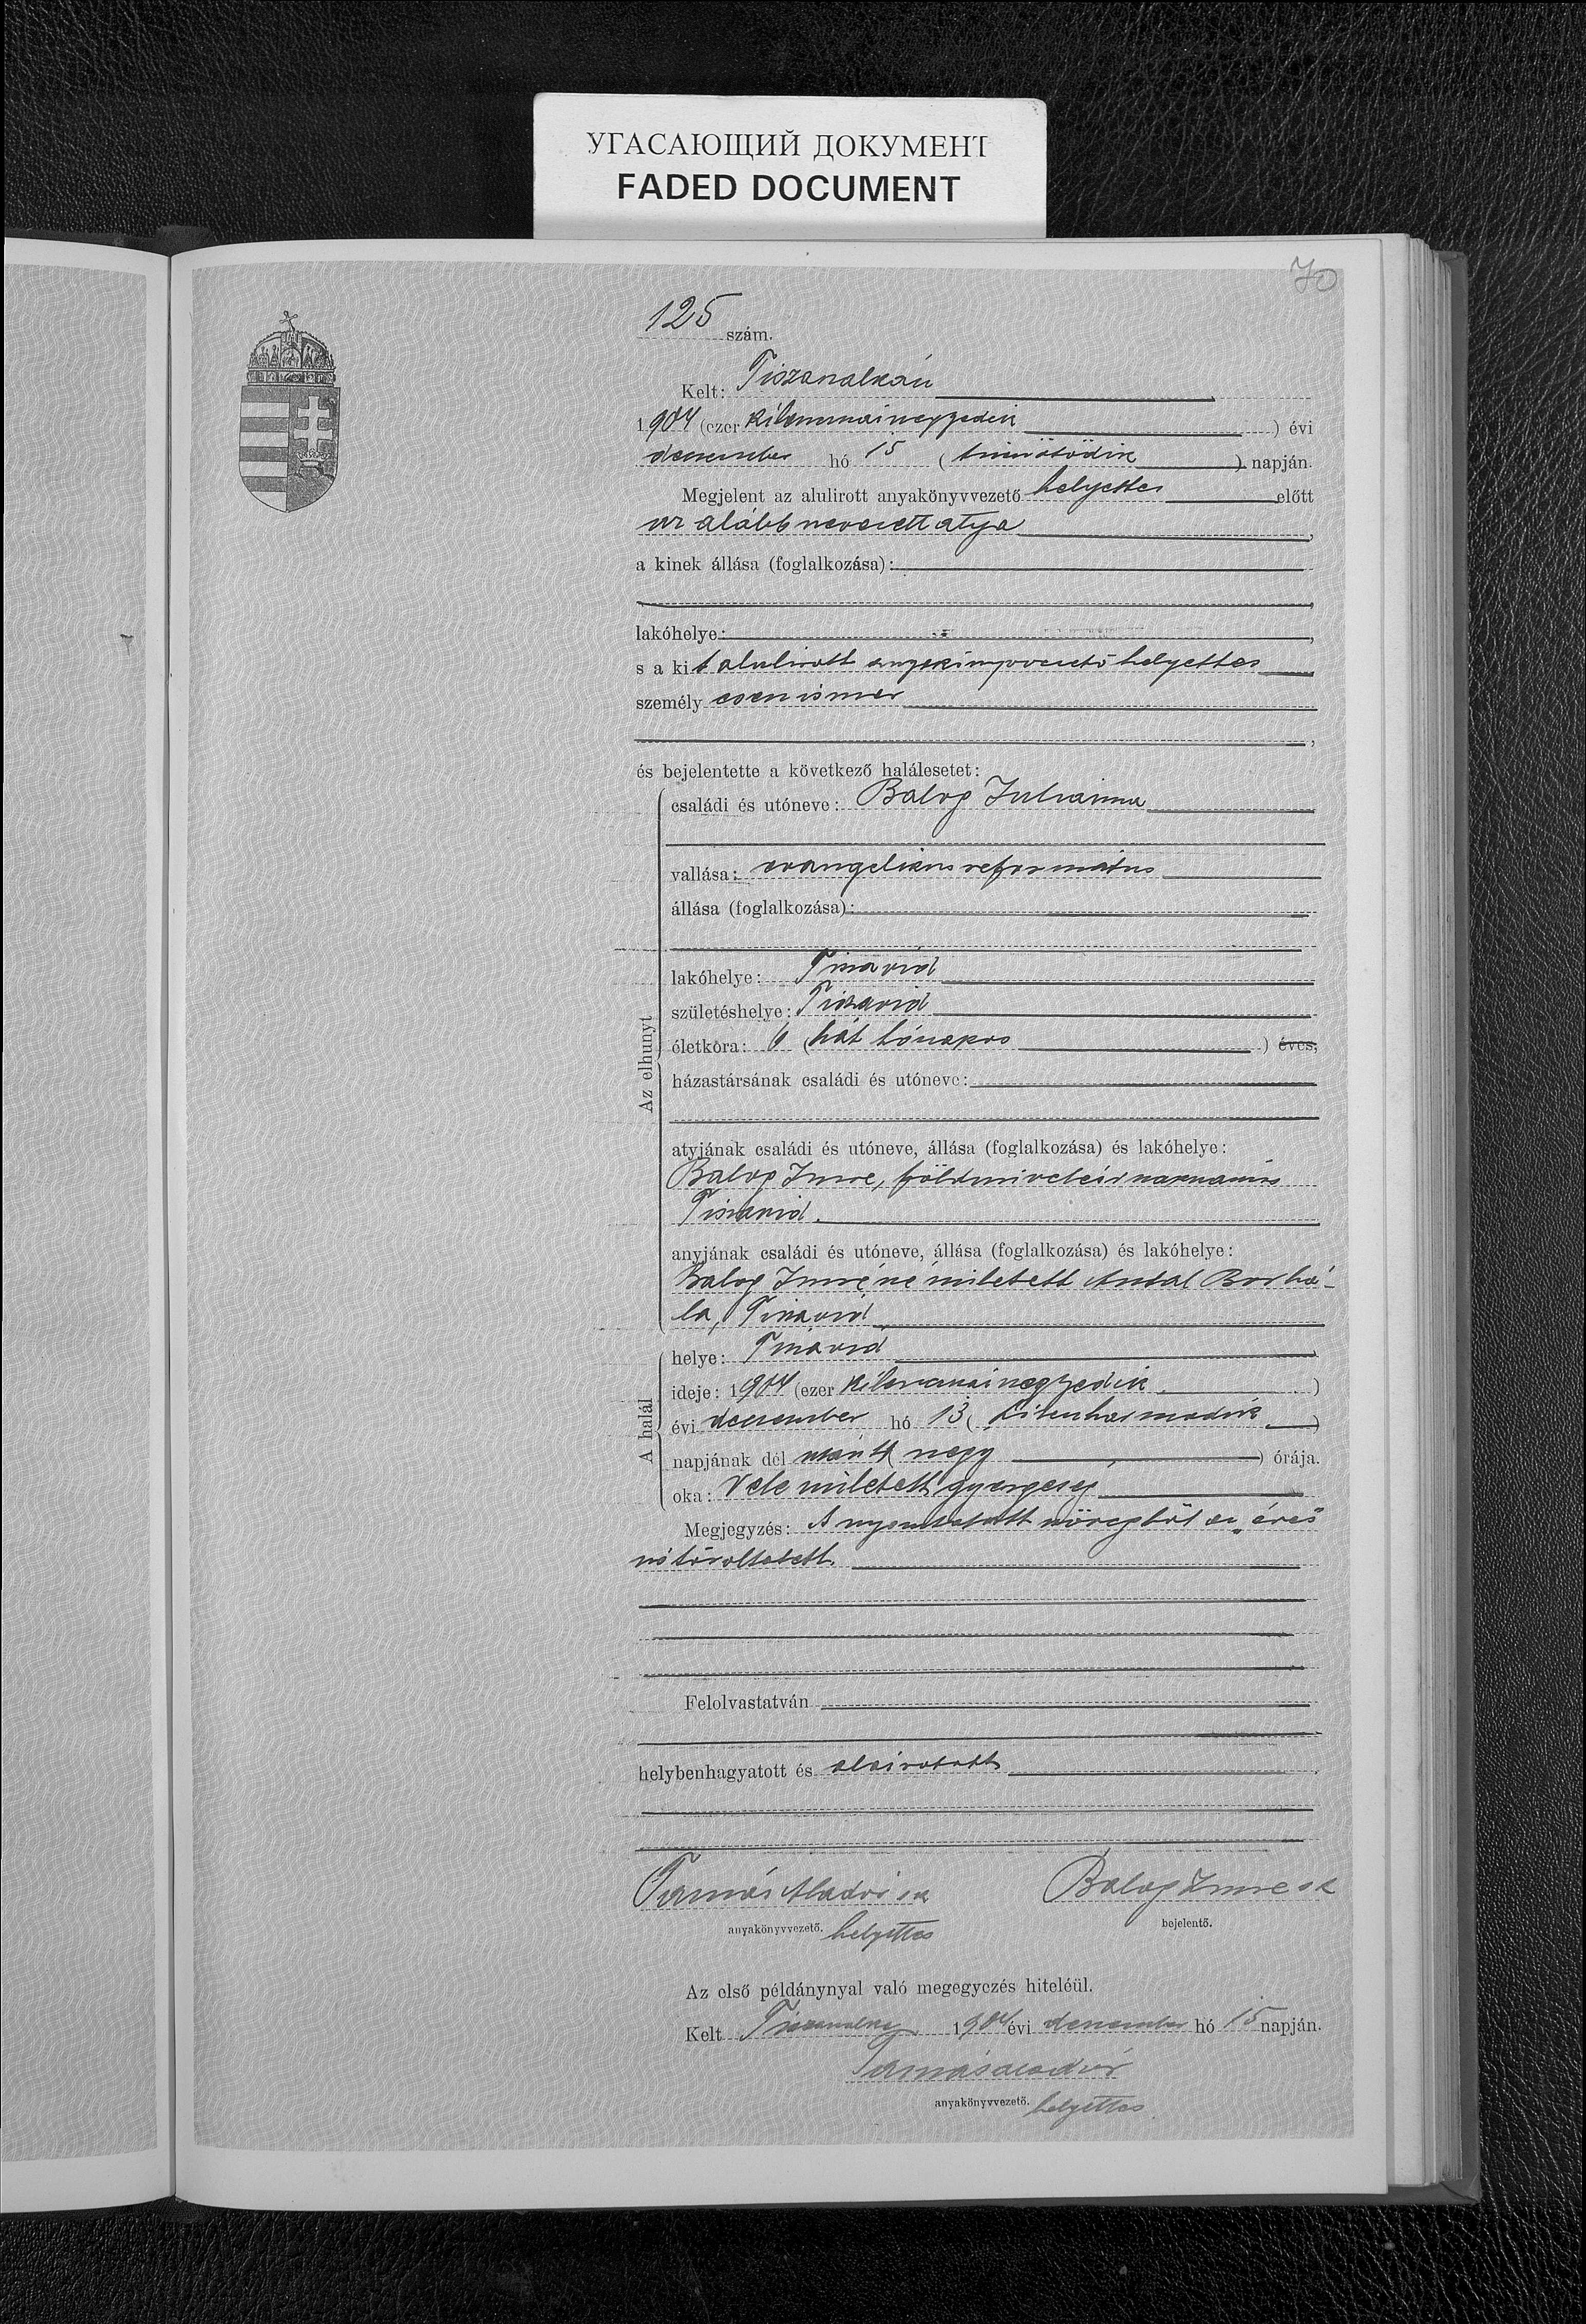 УГАСАЮЩИЙ ДОКУМЕНТ
FADED DOCUMENT
70
125 szám.
Kelt:
1904 (ezer kilenczszáznegyedik) évi
deczember hó 15 (tizenötödik) napján.
Megjelent az alulirott anyakönyvvezető helyettes előtt
az alább nevezett atyja,
a kinek állása (foglalkozása):
lakóhelye:
s a kit alulirott anyakönyvvezető helyettes
személyesen ismer
és bejelentette a következő halálesetet:
Az elhunyt
családi és utóneve: Balog Julianna
vallása: evangelikus református
állása (foglalkozása):
lakóhelye: Tiszavid
születéshelye: Tiszavid
életkora: 6 (hat hónapos) éves,
házastársának családi és utóneve:
atyjának családi és utóneve, állása (foglalkozása) és lakóhelye:
Balog Imre, földmivelés
Tiszavid.
anyjának családi és utóneve, állása (foglalkozása) és lakóhelye:
Balog Imréné született Antal Borbá-
la, Tiszavid
A halál
helye: Tiszavid
ideje: 1904 (ezer kilenczszáznegyedik)
évi deczember hó 13 (tizenharmadik)
napjának dél után 4 (négy) órája.
oka: Vele született gyengeség
Megjegyzés: A nyomtatott szövegből az „éves"
szó töröltetett.
Felolvastatván
helybenhagyatott és aláiratott
Tamás Aladár sk Balog Imre sk
anyakönyvvezető. helyettes bejelentő.
Az első példánynyal való megegyezés hiteléül.
Kelt 1904 évi deczember hó 15 napján.
Tamás Aladár
anyakönyvvezető. helyettes